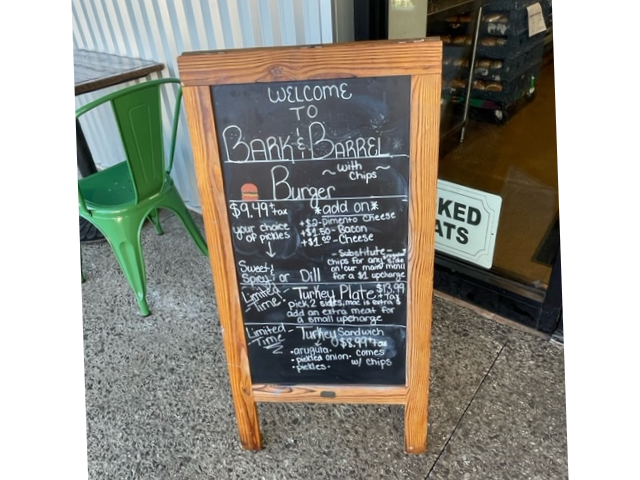 WELCOME
TO
BARK & BARREL
Burger ~ with Chips ~
$9.49 + tax
your choice
of pickles
Sweet &
Spicy or Dill
*add on*
+$2 - Pimento Cheese
+$1.50 - Bacon
+$1.00 - Cheese
- Substitute -
chips for any side
on our main menu
for a $1 upcharge
Limited - Time! - Turkey Plate $13.99 + Tax
pick 2 sides, mac is extra &
add an extra meat for
a small upcharge
Limited - Time - Turkey Sandwich
$8.99 + Tax
• arugula
• pickled onion
• pickles
comes
w/ chips
KED
ATS